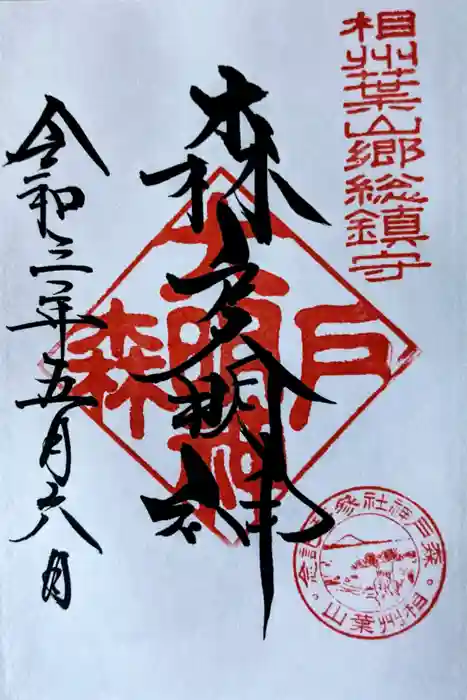 相州葉山郷総鎮守
森戸大明神
森戸
大明神
令和三年五月六日
森戸神社参拝記念
相州葉山